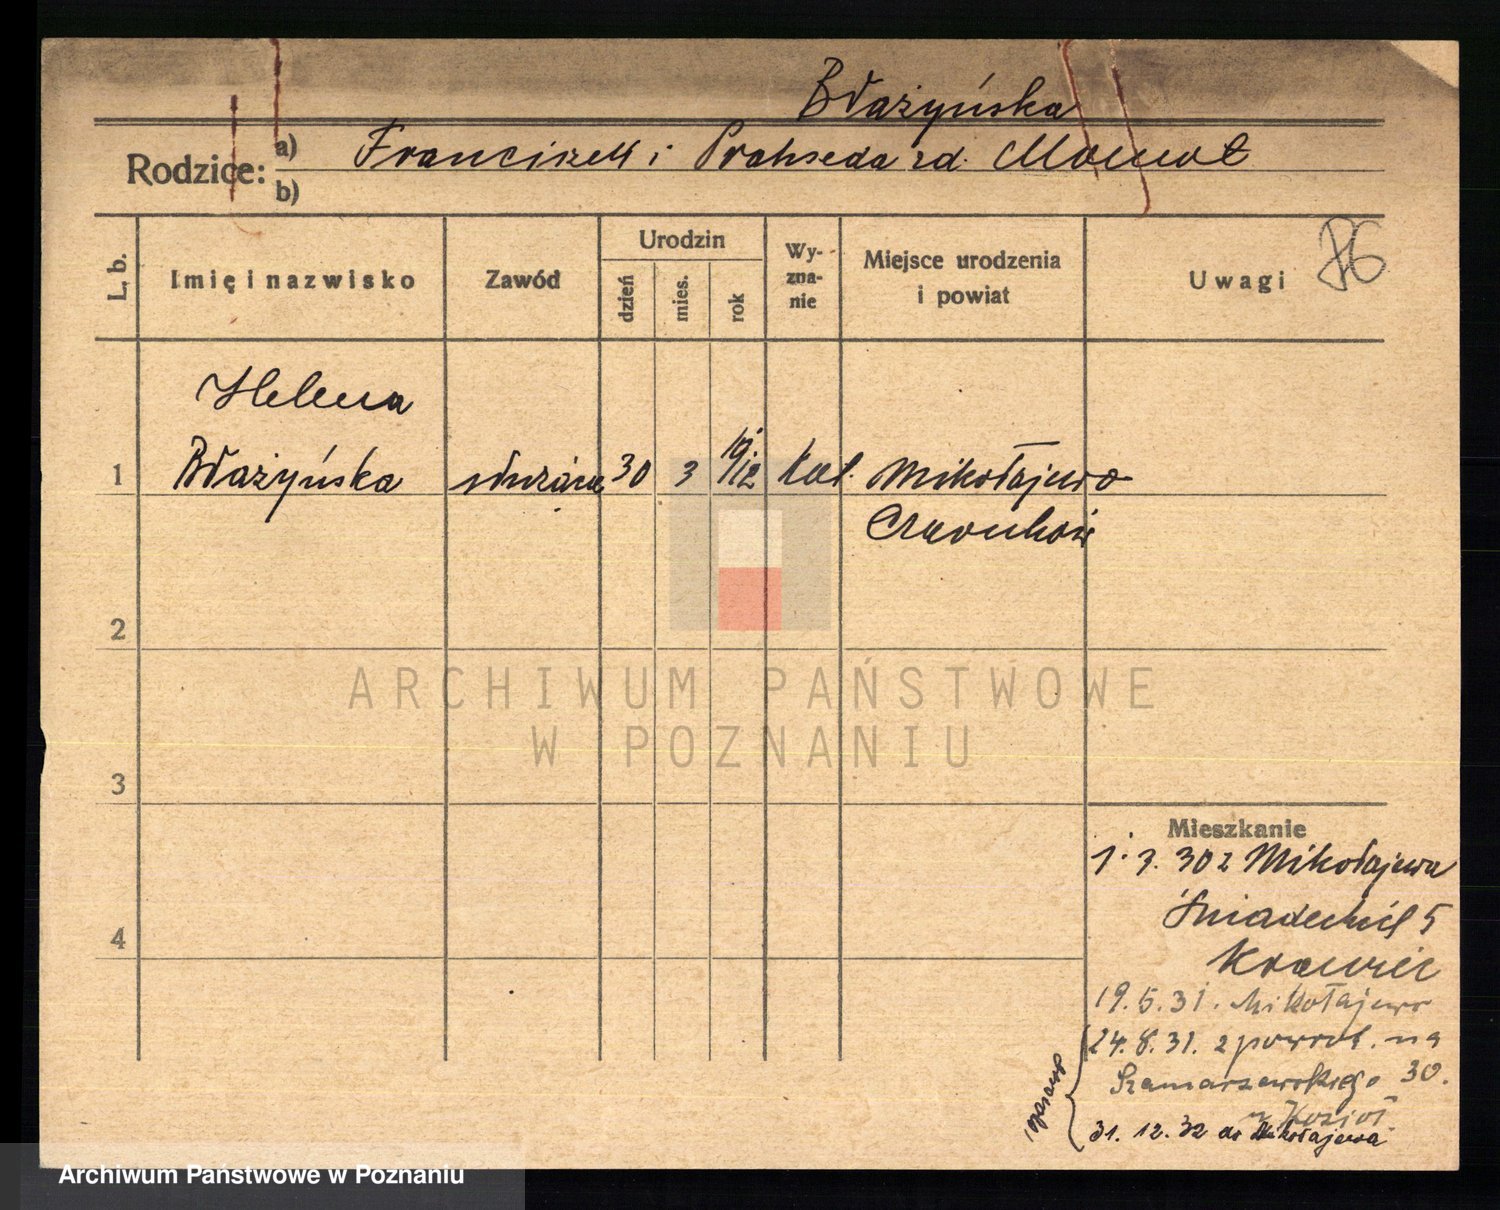 Błażyńska
Rodzice: a) Franciszek i Prakseda zd.
b)
L. b.
Imię i nazwisko
Zawód
Urodzin
dzień
mies.
rok
Wy-
zna-
nie
Miejsce urodzenia
i powiat
Uwagi
Helena
1 Błażyńska służąca 30 3 1912 kat. Mikołajewo
Czarnków
2
3
4
Mieszkanie
1. 3. 30 z Mikołajewa
Śniadeckich 5
Krawiec
19. 5. 31. Mikołajewo
24. 8. 31. z powrot. na
Szamarzewskiego 30.
u Kozioł
31. 12. 32 do Mikołajewa
ARCHIWUM PAŃSTWOWE
W POZNANIU
Archiwum Państwowe w Poznaniu